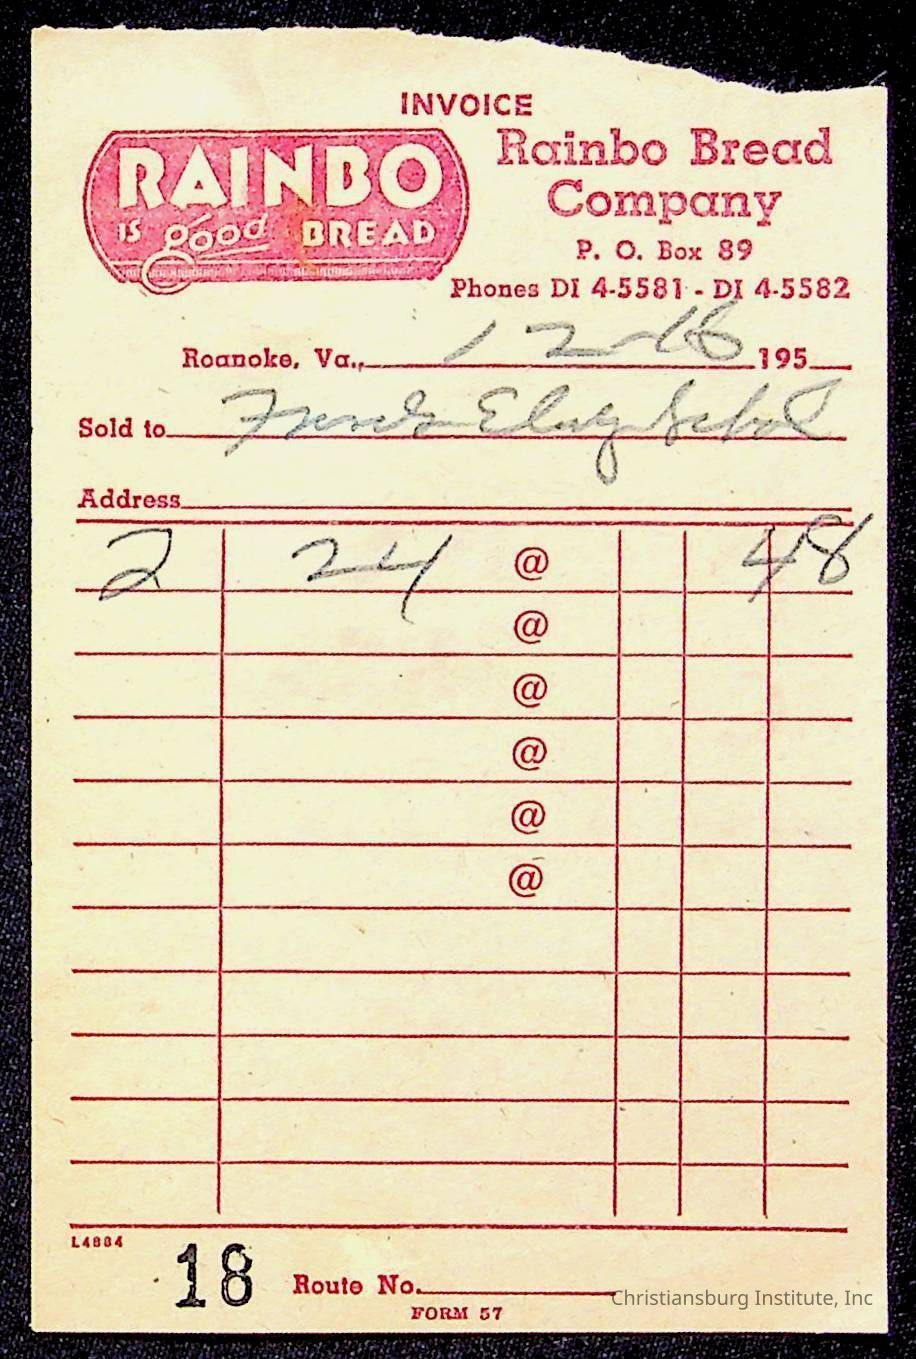 INVOICE
RAINBO
IS good BREAD
Rainbo Bread
Company
P. O. Box 89
Phones DI 4-5581 - DI 4-5582
Roanoke, Va., 12-16 195
Sold to School
Address
2 24 @ 48
@
@
@
@
@
L4884
18 Route No.
FORM 57
Christiansburg Institute, Inc